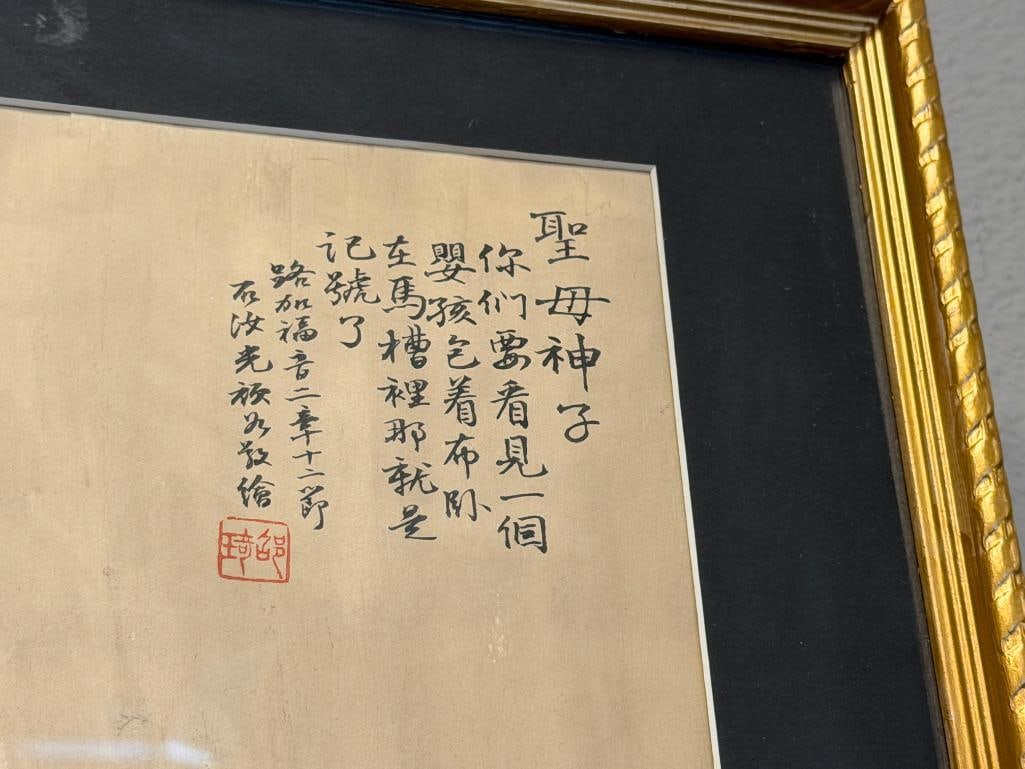 聖母神子
你們要看見一個
嬰孩包着布臥
在馬槽裡那就是
記號了
路加福音二章十二節
石汝光敬繪